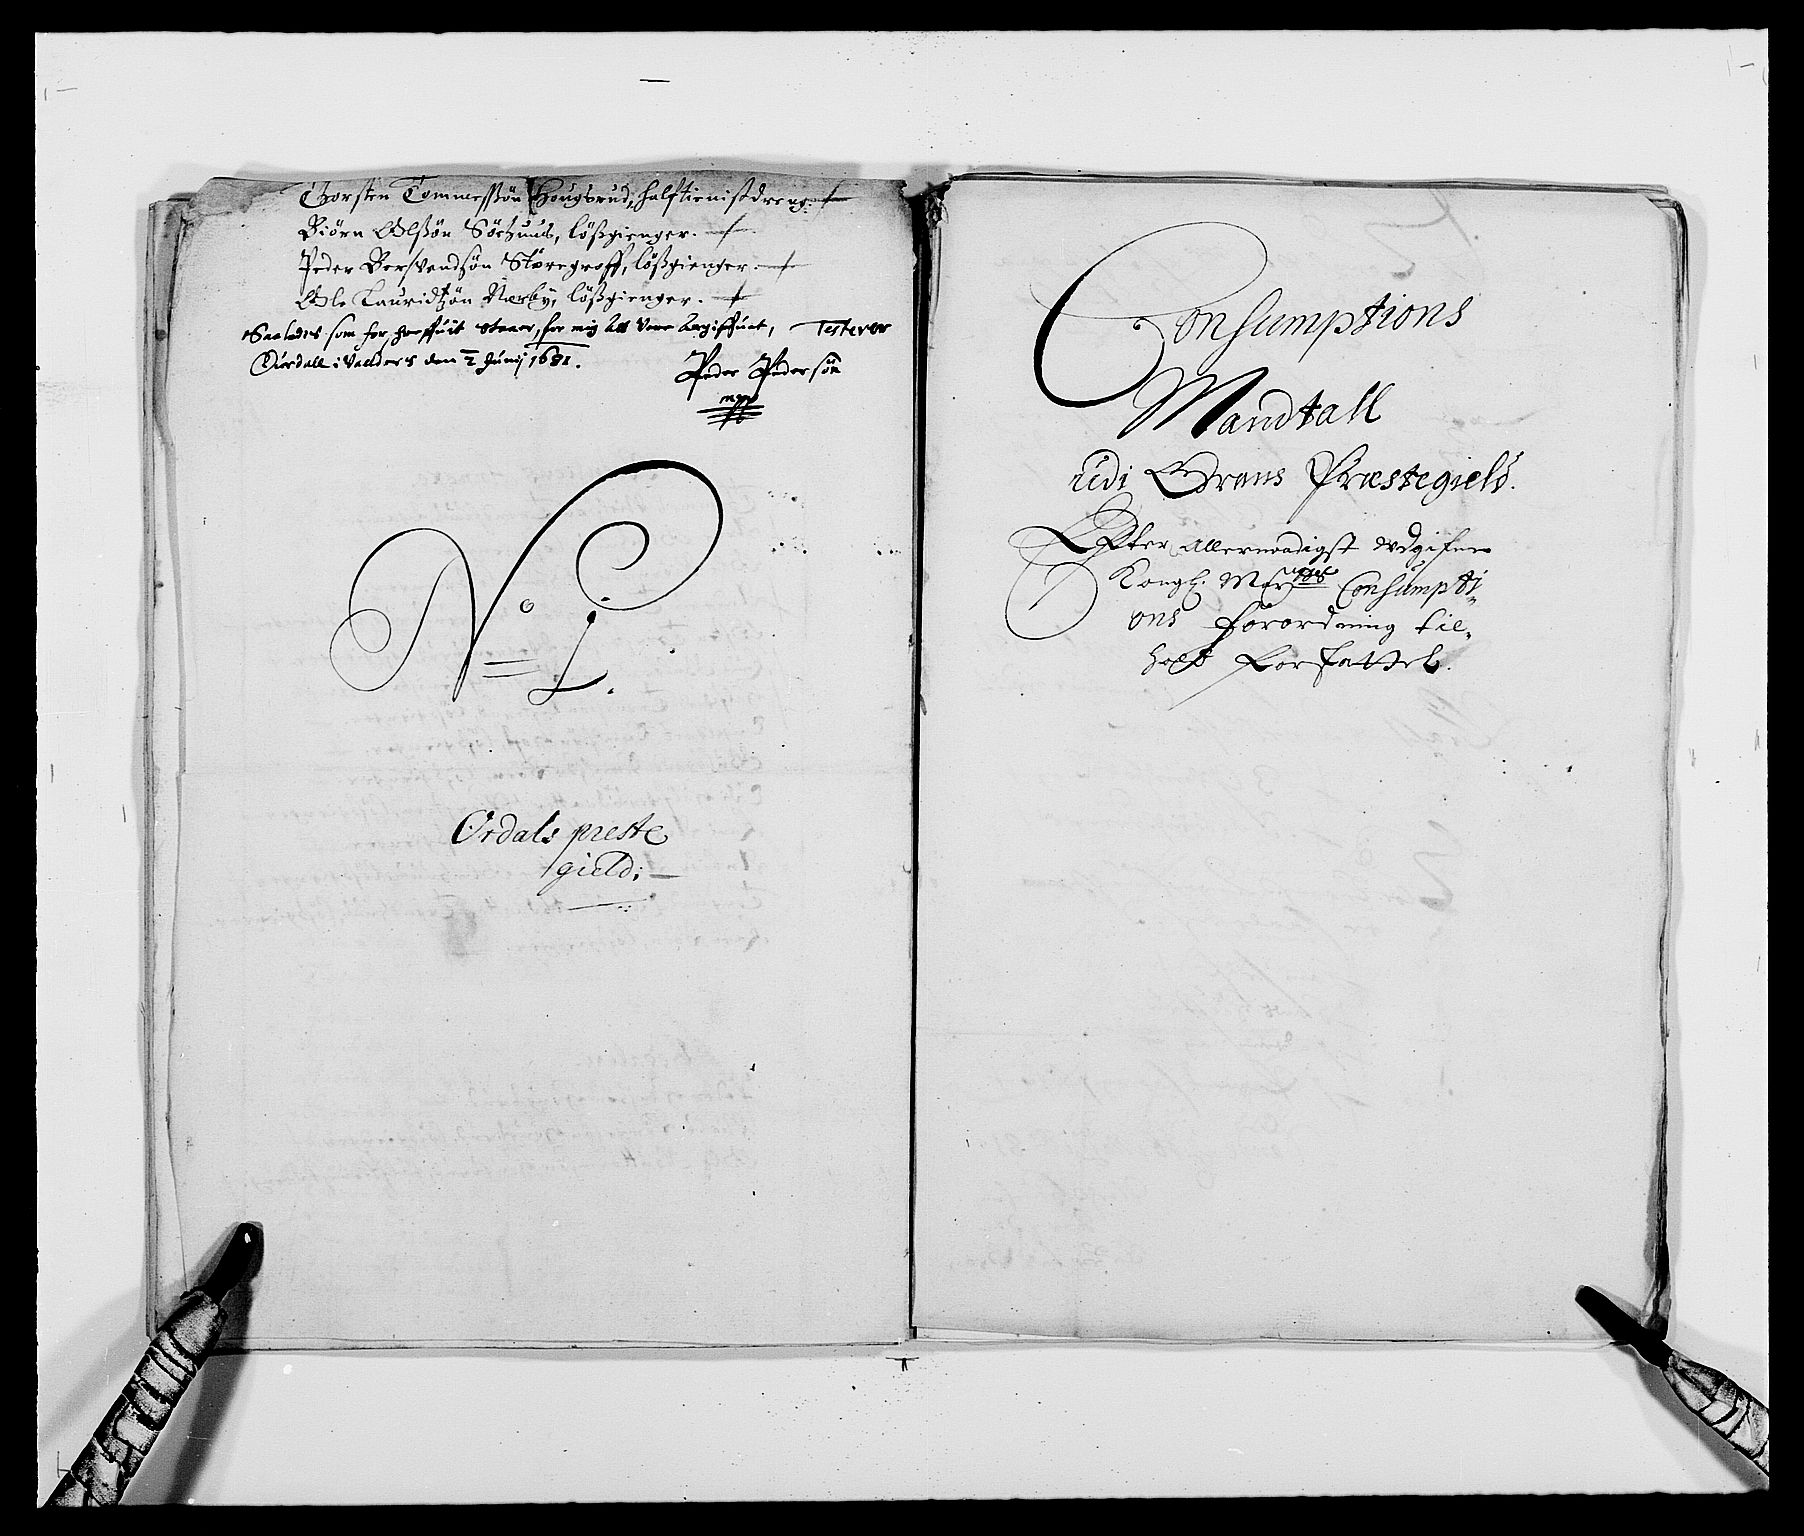 Thorsten Tommessøn Hougsrud, halftienistdreng.
Biørn Olssøn Sørhuus, lößgienger.
Peder Bersvendsøn Støregroff, lößgienger.
Ole Lauridtzøn Nærby, lößgienger.
Saaledes som forschreffuit staaer, for mig att vere Angiffuet, Testerer
Øjerdall i Valders den 2 Junij 1681.
Peder Pedersøn
mpp
No 1.
Ordals preste
gield:
Consumptions
Mandtall
udi Grans Præstegield.
Effter Allernaadigst udgifne
Kongl. May Consumpti
ons forordning til
hold forfattet.